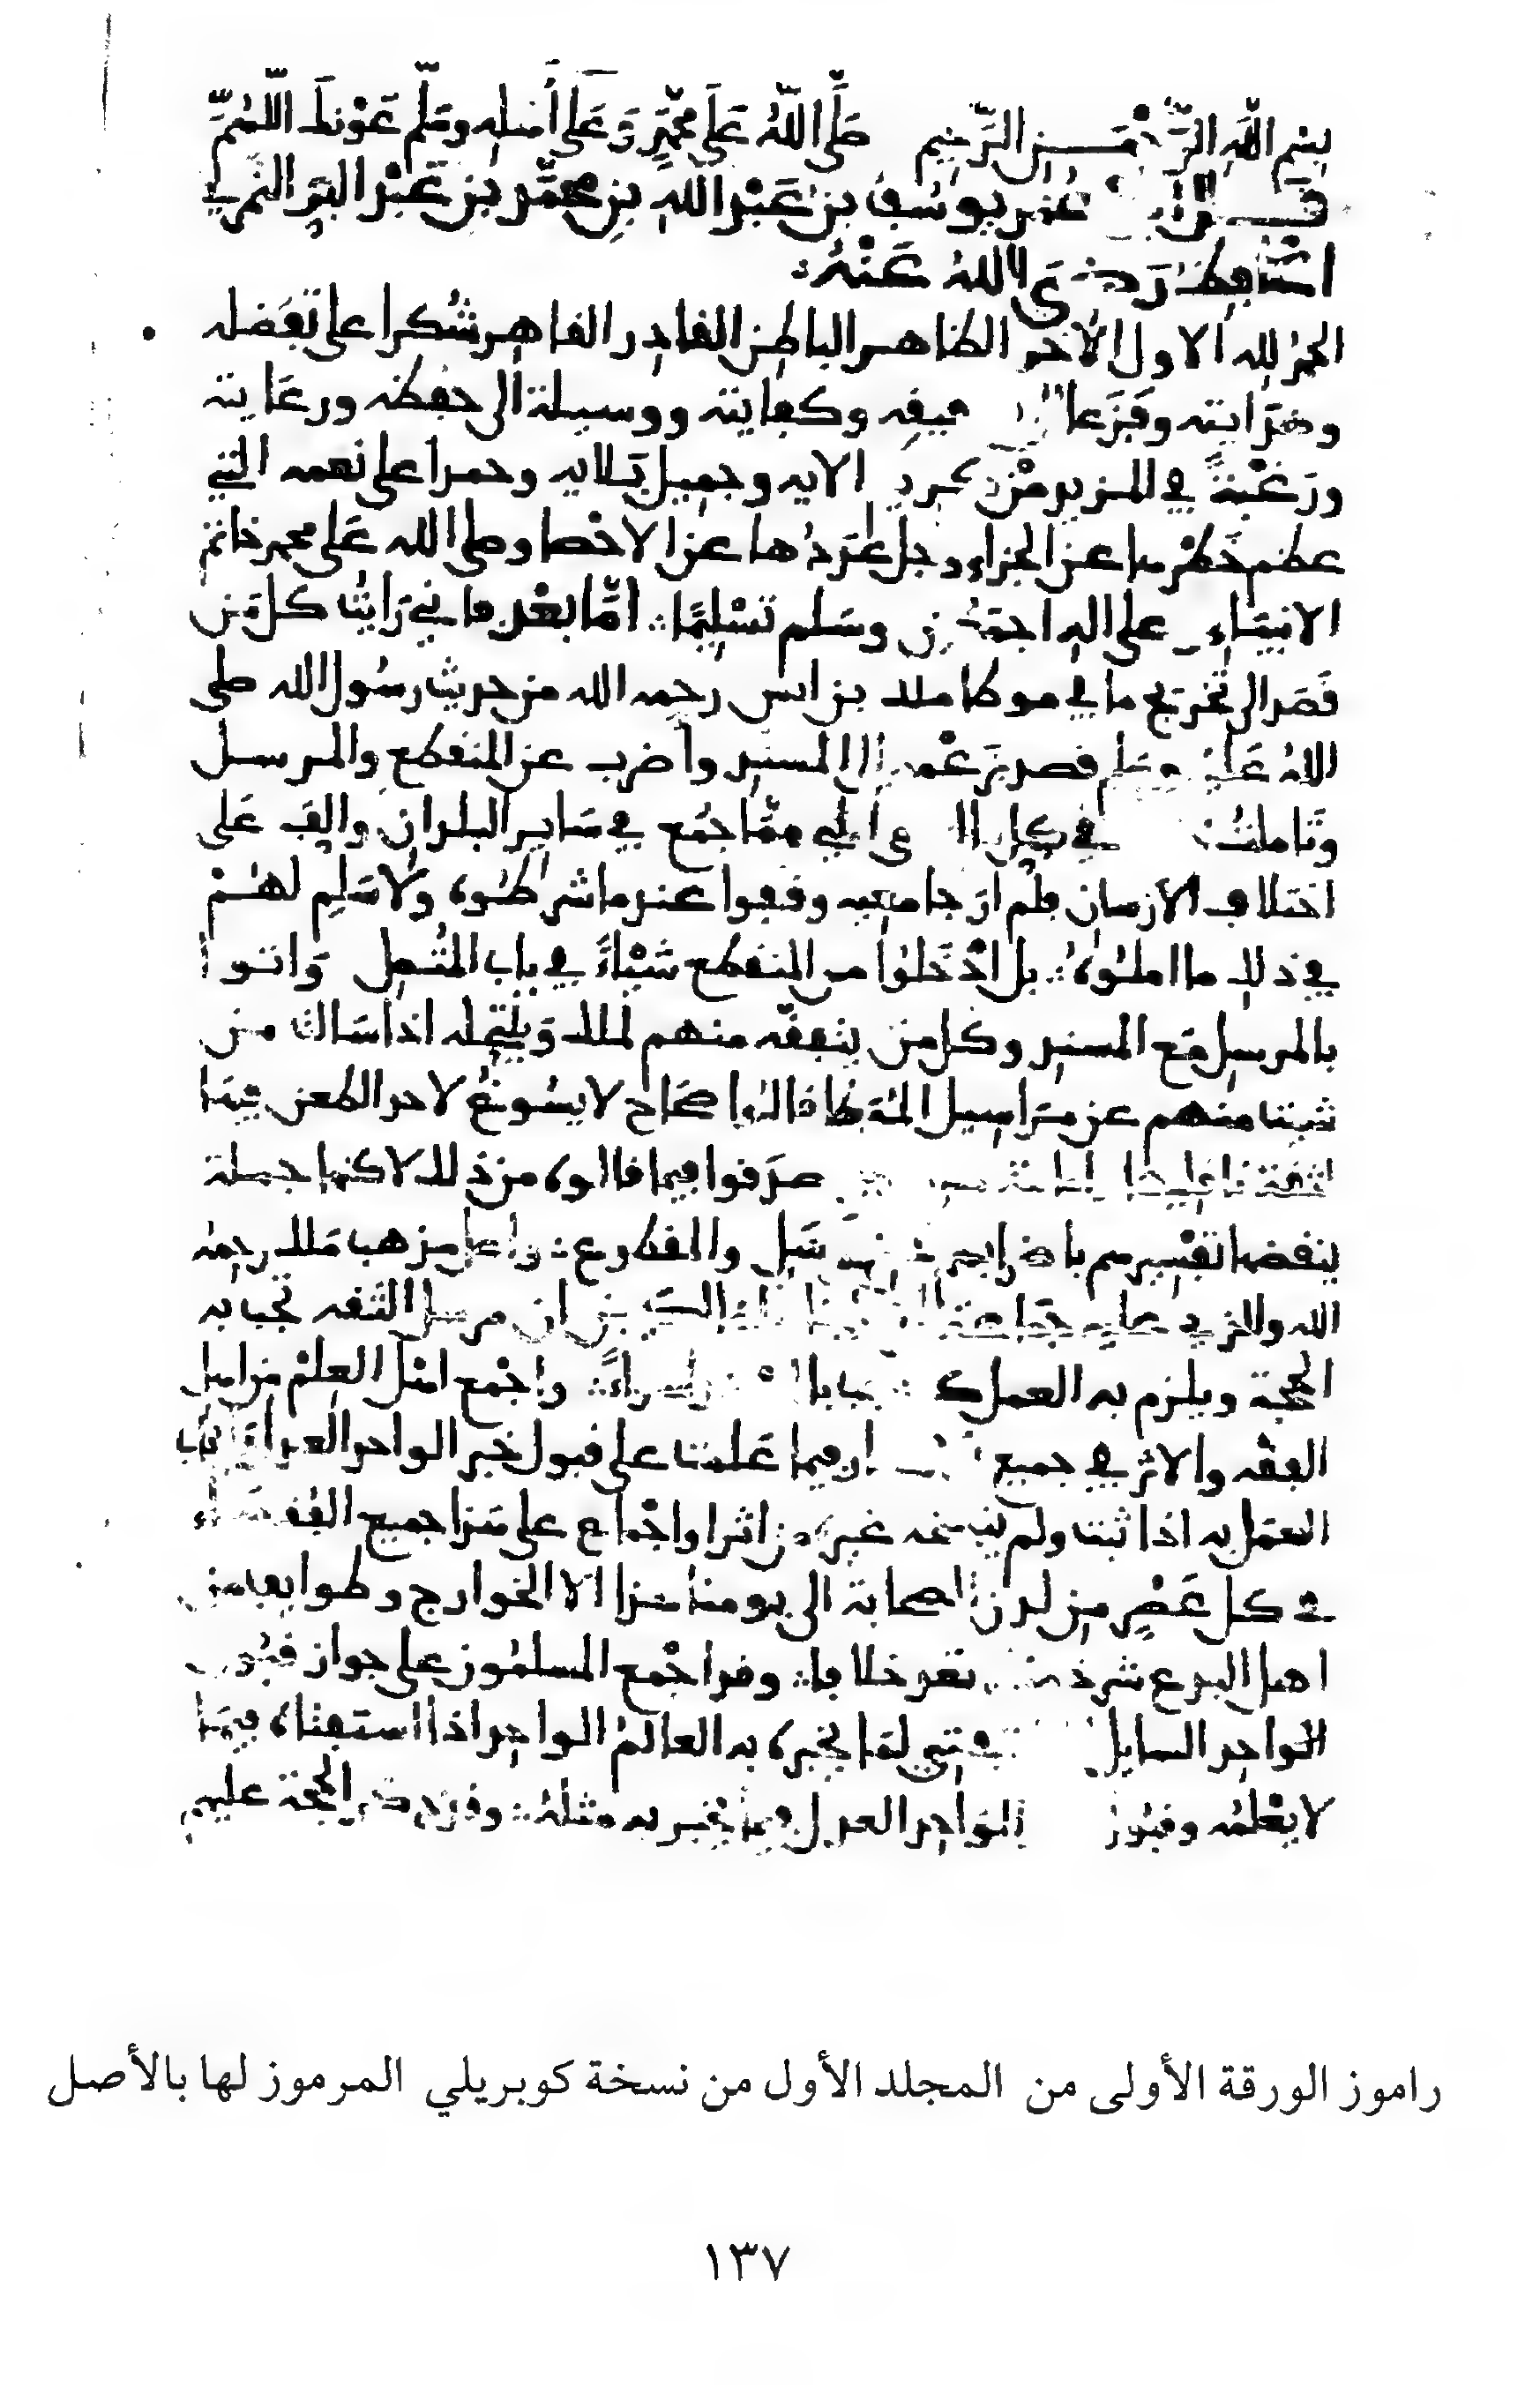 بسم الله الرحمن الرحيم صلى الله على محمد وعلى أهله وسلم عونك اللهم
قال عمر يوسف بن عبد الله بن محمد بن عبد البر النمري
الحافظ رضي الله عنه
الحمد لله الاول الاخر الظاهر الباطن القادر القاهر شكرا على تفضله
وهدايته وفزعا توفيقه وكفايته ووسيلة الى حفظه ورعايته
ورغبة في المزيد من كريم الايه وجميل بلايه وحمدا على نعمه التي
عظم خطرها عن الجزاء وجل عددها عن الاحصا وصلى الله على محمد خاتم
الانبياء وعلى اله اجمعين وسلم تسليما اما بعد فاني رايت كل من
قصد الى تخريج ما في موطا ملك بن انس رحمه الله من حديث رسول الله صلى
الله عليه وسلم قصد بزعمه الى المسند واضرب عن المنقطع والمرسل
وتاملت في كل ال مما جمع في ساير البلدان والف على
اختلاف الازمان فلم ار جامعيه وقفوا عند ما شرطوه ولا سلم لهم
في ذلك ما املوه بل ادخلوا من المنقطع شيئا في باب المتصل واتوا
بالمرسل مع المسند وكل من يتفقه منهم لملك وينتحله اذا سالت من
شيت منهم عن مراسيل الموطا قالوا صحاح لا يسوغ لاحد الطعن فيها
لثقة ناقليها وامانة صدقوا فيما قالوه من ذلك لاكنها جملة
ينقضها تفسيرهم باضرابهم عن المرسل والمقطوع واصل مذهب ملك رحمه
الله والذي عليه جماعة المالكيين ان مرسل الثقه تجب به
الحجة ويلزم به العمل كما تجب بالمسند سواء واجمع اهل العلم من اهل
الفقه والاثر في جميع الامصار فيما علمت على قبول خبر الواحد العدل وايجاب
العمل به اذا ثبت ولم ينسخه غيره من اثر او اجماع على هذا جميع الفقهاء
في كل عصر من لدن الصحابة الى يومنا هذا الا الخوارج وطوايف من
اهل البدع شرذمة تعد خلافا وقد اجمع المسلمون على جواز قبول
الواحد السايل المستفتي لما يخبره به العالم الواحد اذا استفتاه فيما
لا يعلمه وقبول الواحد العدل فيما يخبر به مثله وقد ذكر الحجة عليهم
راموز الورقة الأولى من المجلد الأول من نسخة كوبريلي المرموز لها بالأصل
١٣٧